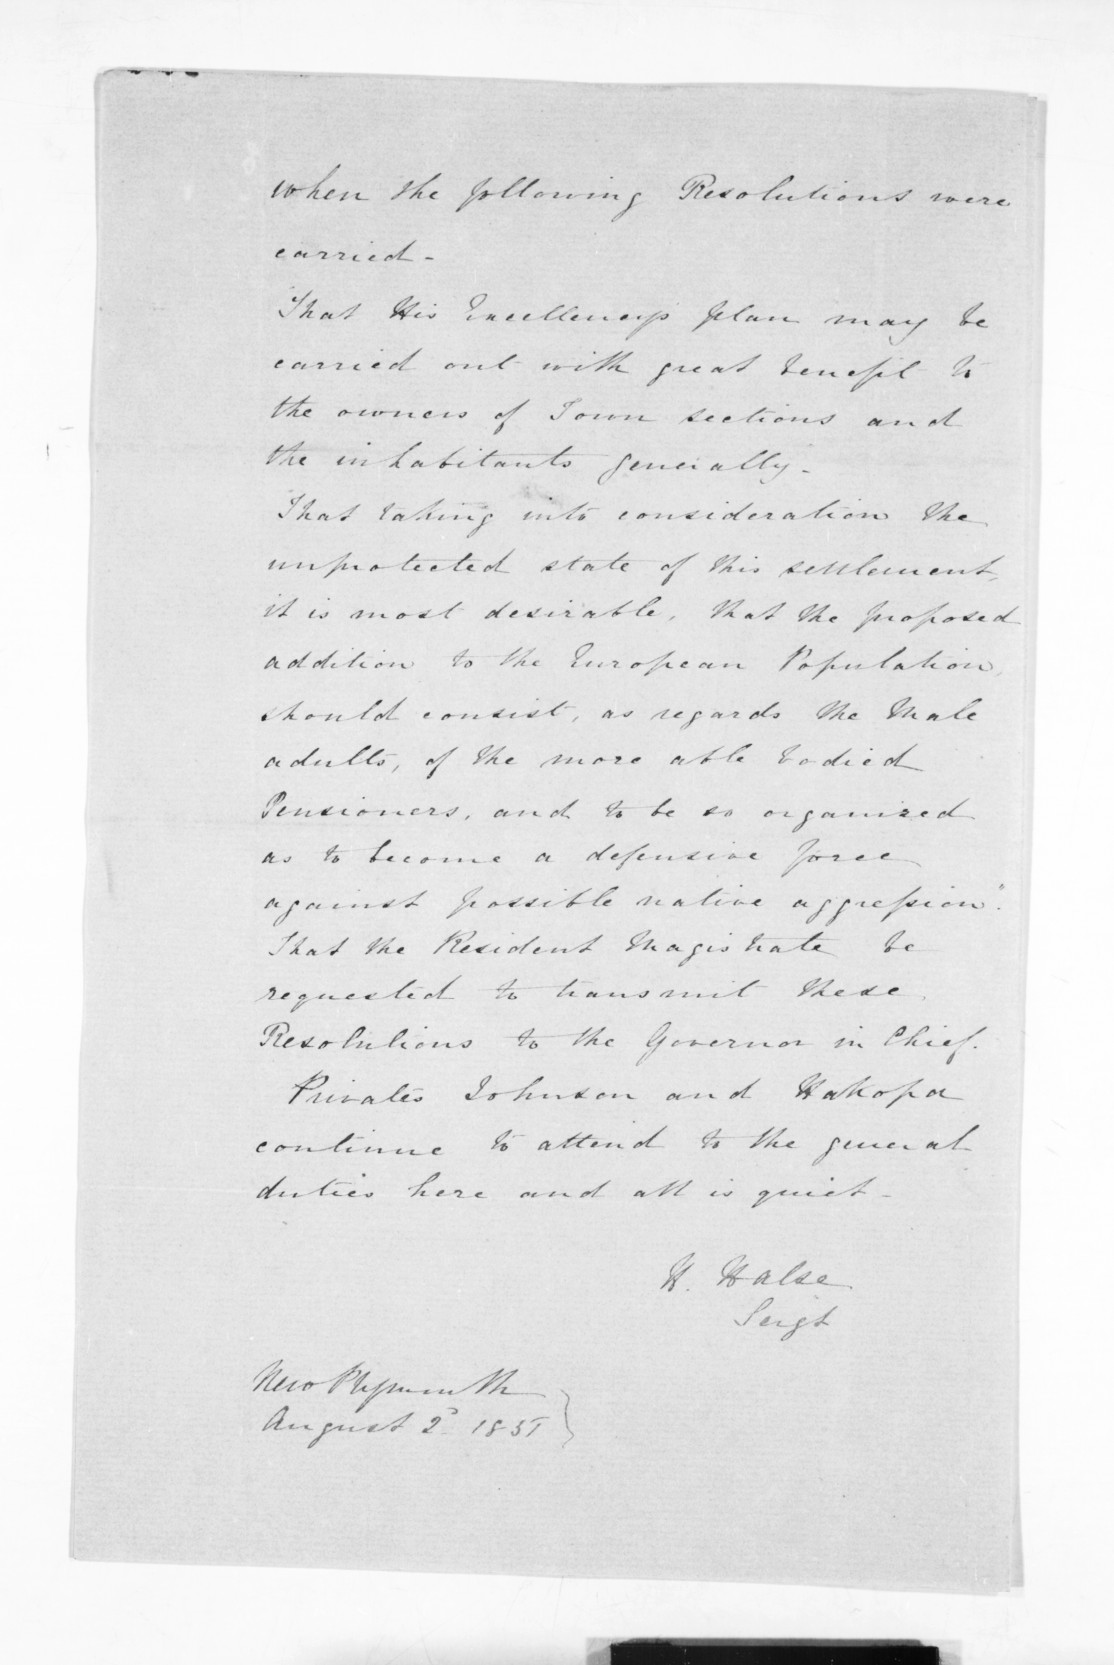 when the following Resolutions were
carried -
That His Excellency's plan may be
carried out with great benefit to
the owners of Town sections and
the inhabitants generally -
That taking into consideration the
unprotected state of this settlement,
it is most desirable, that the proposed
addition to the European Population,
should consist, as regards the Male
adults, of the more able bodied
Pensioners, and to be so organized
as to become a defensive force
against possible native aggression".
That the Resident Magistrate be
requested to transmit these
Resolutions to the Governor in Chief.
Privates Johnson and Hakopa
continue to attend to the general
duties here and all is quiet -
H. Halse
Sergt
New Plymouth
August 2d 1851